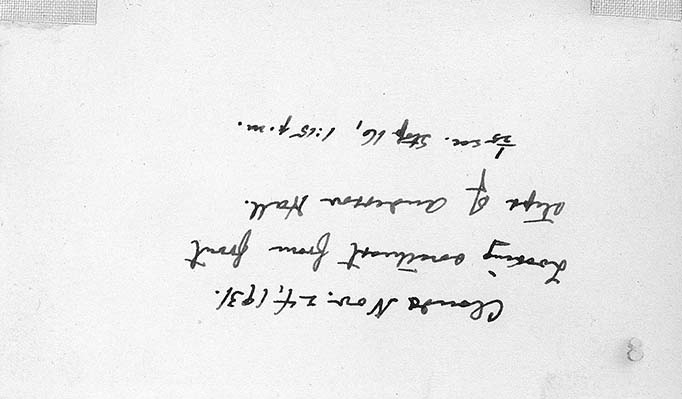 Clouds Nov. 24, 1931.
Looking southwest from front
steps of Anderson Hall.
1/25 sec. Stop 16, 1:15 p.m.